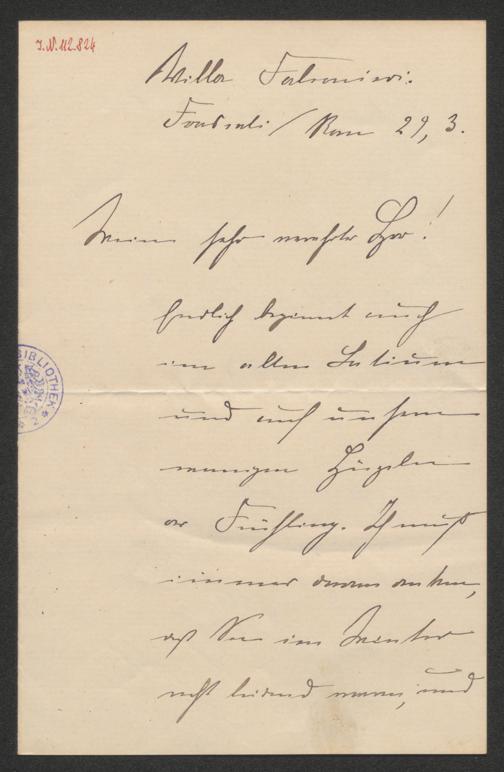 J.N. 112.824
Villa Falconieri.
Frascati / Rom 29, 3.
Mein sehr verehrter Herr!
Endlich beginnt auch
im alten Latium
und auf unseren
Hügeln
der Frühling. Ich muß
immer daran denken,
daß Sie im Winter
recht leidend waren, und
BIBLIOTHEK